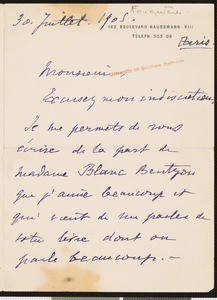 30. Juillet. 1905.
162, BOULEVARD HAUSSMANN VIII
TELEPH: 503-09
Paris.
Monsieur
Excusez mon indiscrétion,
Je me permets de vous
écrire de la part de
Madame Blanc Bentzon
que j'aime beaucoup et
qui vient de me parler de
votre livre dont on
parle beaucoup. -